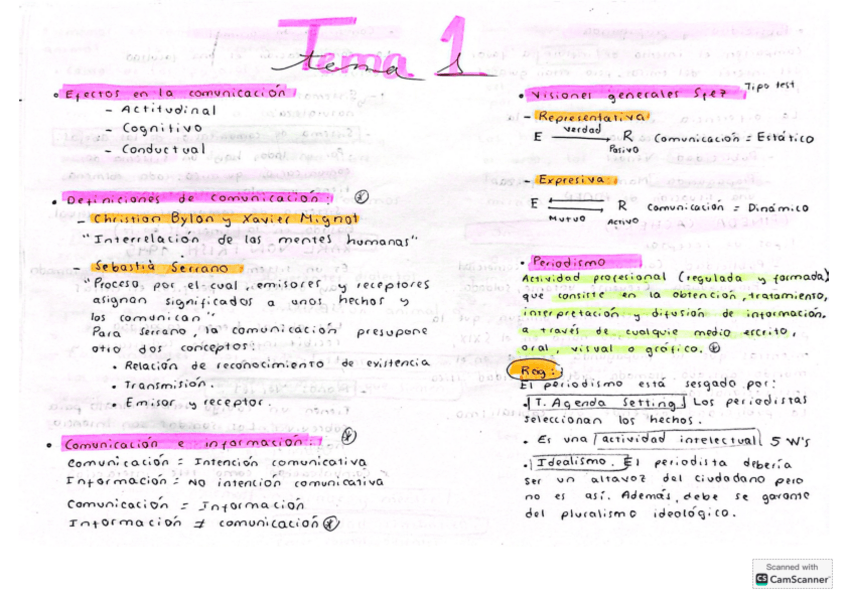 Tema 1
tema 1
• Efectos en la comunicación
- Actitudinal
- Cognitivo
- Conductual
• Definiciones de comunicación:
- Christian Bylon y Xavier Mignot
"Interrelación de las mentes humanas"
- Sebastiá Serrano:
"Proceso por el cual, emisores y receptores
asignan significados a unos hechos y
los comunican"
Para serrano, la comunicación presupone
otro dos conceptos:
• Relación de reconocimiento de existencia
• Transmisión.
• Emisor y receptor.
• Comunicación e información:
Comunicación = Intención comunicativa
Información = NO intención comunicativa
Comunicación = Información
Información ≠ comunicación
• Visiones generales Spez Tipo test
- Representativa:
E verdad → R Comunicación = Estático
Pasivo
- Expresiva:
E ⟷ R Comunicación = Dinámico
Mutuo Activo
• Periodismo
Actividad profesional (regulada y formada)
que consiste en la obtención, tratamiento,
interpretación y difusión de información,
a través de cualquie medio escrito,
oral, visual o gráfico.
Rag:
El periodismo está sesgado por:
• T. Agenda Setting. Los periodistas
seleccionan los hechos.
• Es una actividad intelectual 5 W's
• Idealismo. El periodista debería
ser un altavoz del ciudadano pero
no es así. Además, debe se garante
del pluralismo ideológico.
Scanned with
CS CamScanner